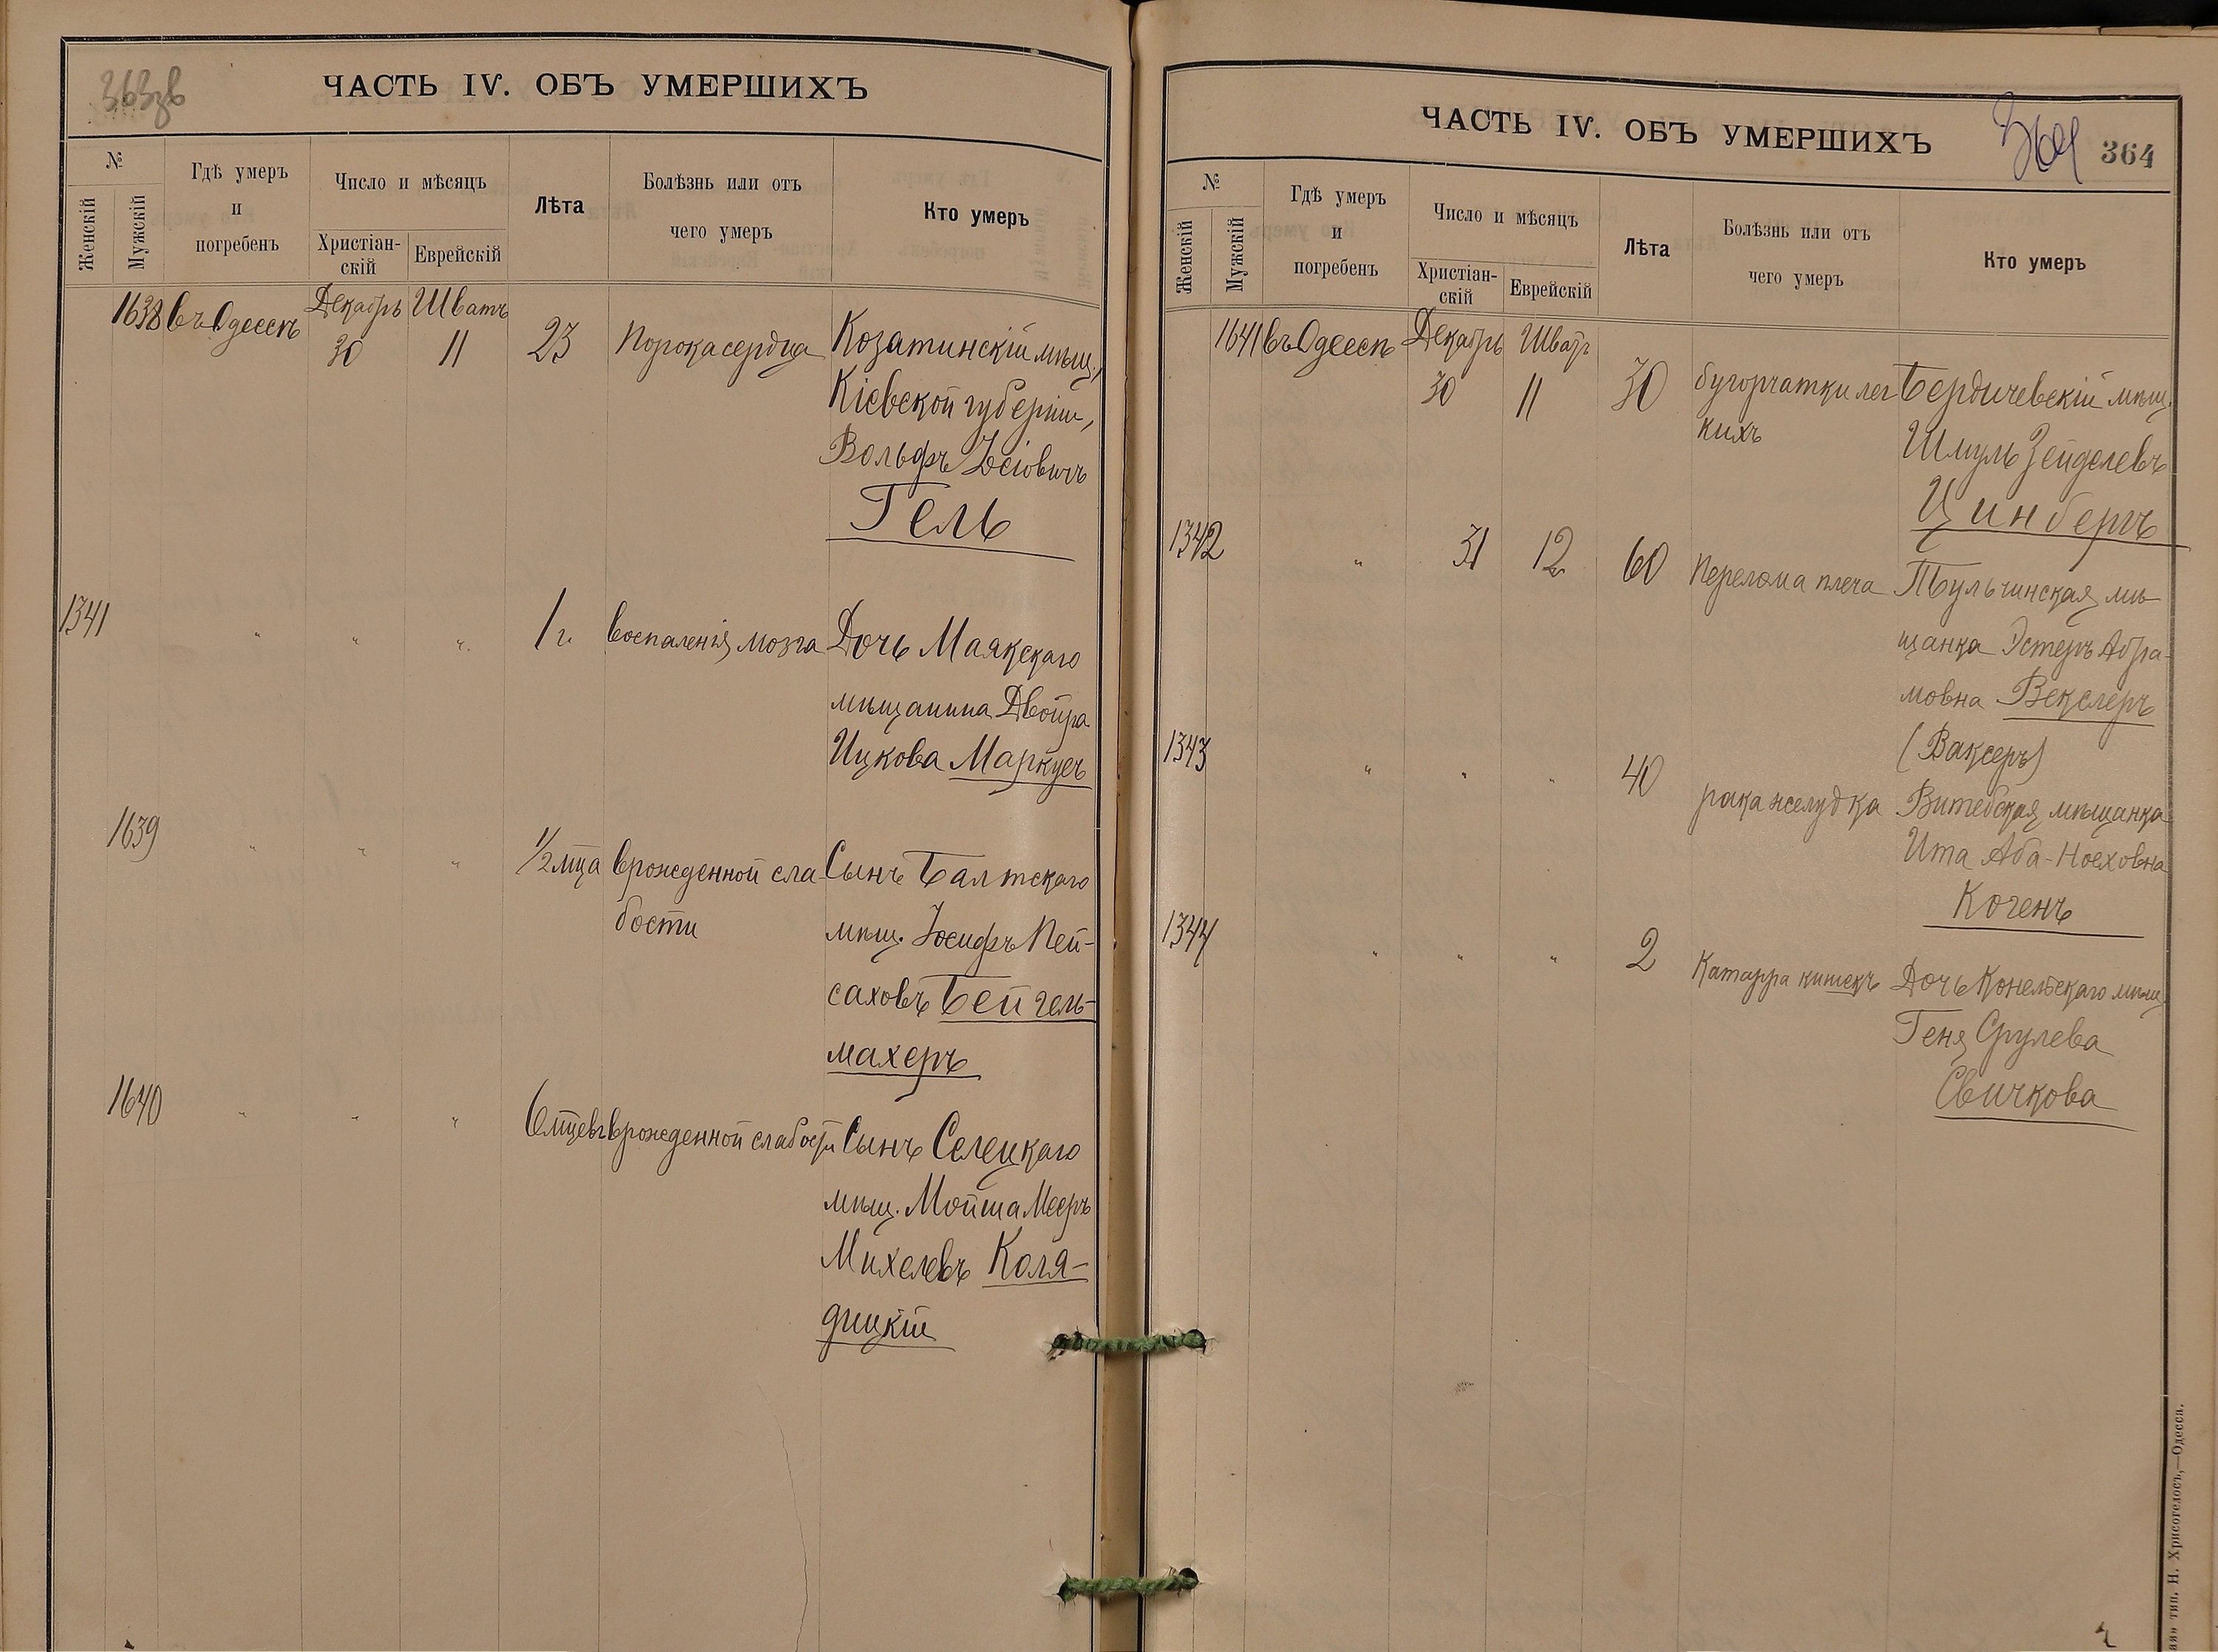 363зв
ЧАСТЬ IV. ОБЪ УМЕРШИХЪ
№
Женскій
Мужскій
Гдѣ умеръ
и
погребенъ
Число и мѣсяцъ
Христіан-
скій
Еврейскій
Лѣта
Болѣзнь или отъ
чего умеръ
Кто умеръ
1638 въ Одессѣ Декабрь 30 Шватъ 11 23 Порока сердца Козатинскій мѣщ.,
Кіевской губерніи,
Вольфъ Іосіовичъ
Гель
1341 " " " 1 г. Воспаленія мозга Дочь Маякскаго
мѣщанина Двойра
Ицкова Маркусъ
1639 " " " 1/2 мца врожденной сла- Сынъ Балтскаго
бости мѣщ. Іосифъ Пей-
саховъ Бейгель-
махеръ
1640 " " " 6 мцевъ врожденной слабости Сынъ Селецкаго
мѣщ. Мойша Мееръ
Михелевъ Коля-
дицкій
ЧАСТЬ IV. ОБЪ УМЕРШИХЪ
364
364
№
Женскій
Мужскій
Гдѣ умеръ
и
погребенъ
Число и мѣсяцъ
Христіан-
скій
Еврейскій
Лѣта
Болѣзнь или отъ
чего умеръ
Кто умеръ
1641 въ Одессѣ Декабрь 30 Шватъ 11 30 бугорчатки лег Бердичевскій мѣщ.
кихъ Шмуль Зейделевъ
Цинбергъ
1342 " 31 12 60 Перелома плеча Тульчинская мѣ-
щанка Эстеръ Абра-
мовна Векслеръ
(Ваксеръ)
1343 " " " 40 рака желудка Витебская мѣщанка
Ита Аба-Ноеховна
Когенъ
1344 " " " 2 Катарра кишекъ Дочь Конельскаго мѣщ.
Геня Срулева
Свичкова
тип. Н. Хрисогелосъ,—Одесса.